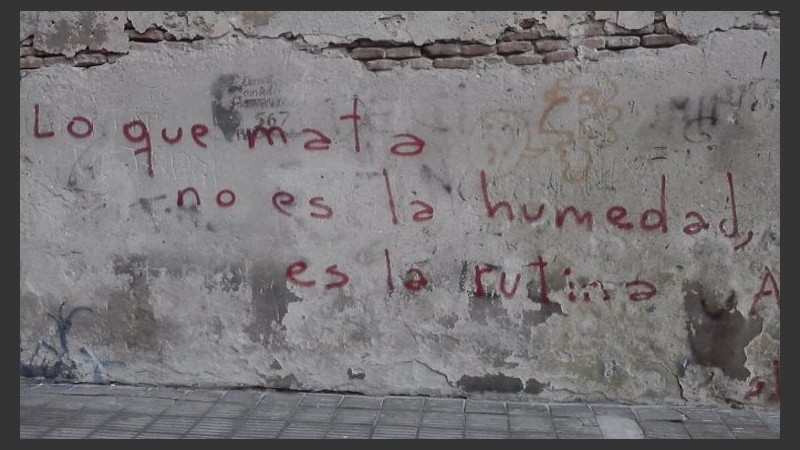 Lo que mata
no es la humedad,
es la rutina
A
567